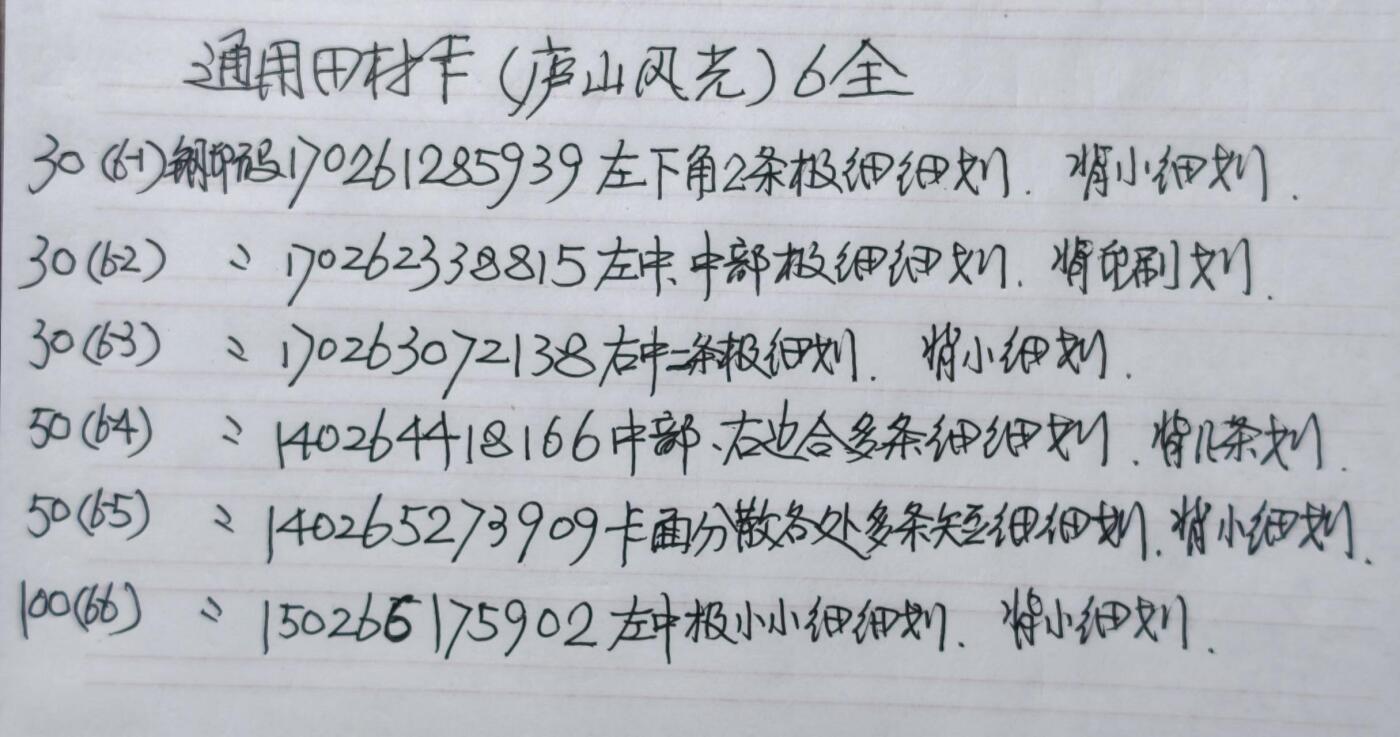 通用田村卡(庐山风光)6全
30(6-1)钢印码170261285939左下角2条极细细划.背小细划.
30(6-2) 〃 170262338815左中、中部极细细划.背印刷划.
30(6-3) 〃 170263072138右中二条极细划.背小细划.
50(6-4) 〃 140264418166中部、右边合多条细细划.背几条划.
50(6-5) 〃 140265273909卡面分散各处多条短细细划.背小细划.
100(6-6) 〃 150266175902左中极小小细细划.背小细划.